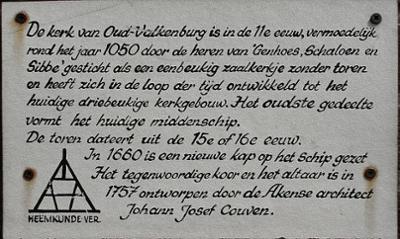 De kerk van Oud-Valkenburg is in de 11e eeuw, vermoedelijk
rond het jaar 1050 door de heren van 'Genhoes, Schaloen en
Sibbe' gesticht als een eenbeukig zaalkerkje zonder toren
en heeft zich in de loop der tijd ontwikkeld tot het
huidige driebeukige kerkgebouw. Het oudste gedeelte
vormt het huidige middenschip.
De toren dateert uit de 15e of 16e eeuw.
In 1660 is een nieuwe kap op het schip gezet
Het tegenwoordige koor en het altaar is in
1757 ontworpen door de Akense architect
Johann Josef Couven.
HEEMKUNDE VER.